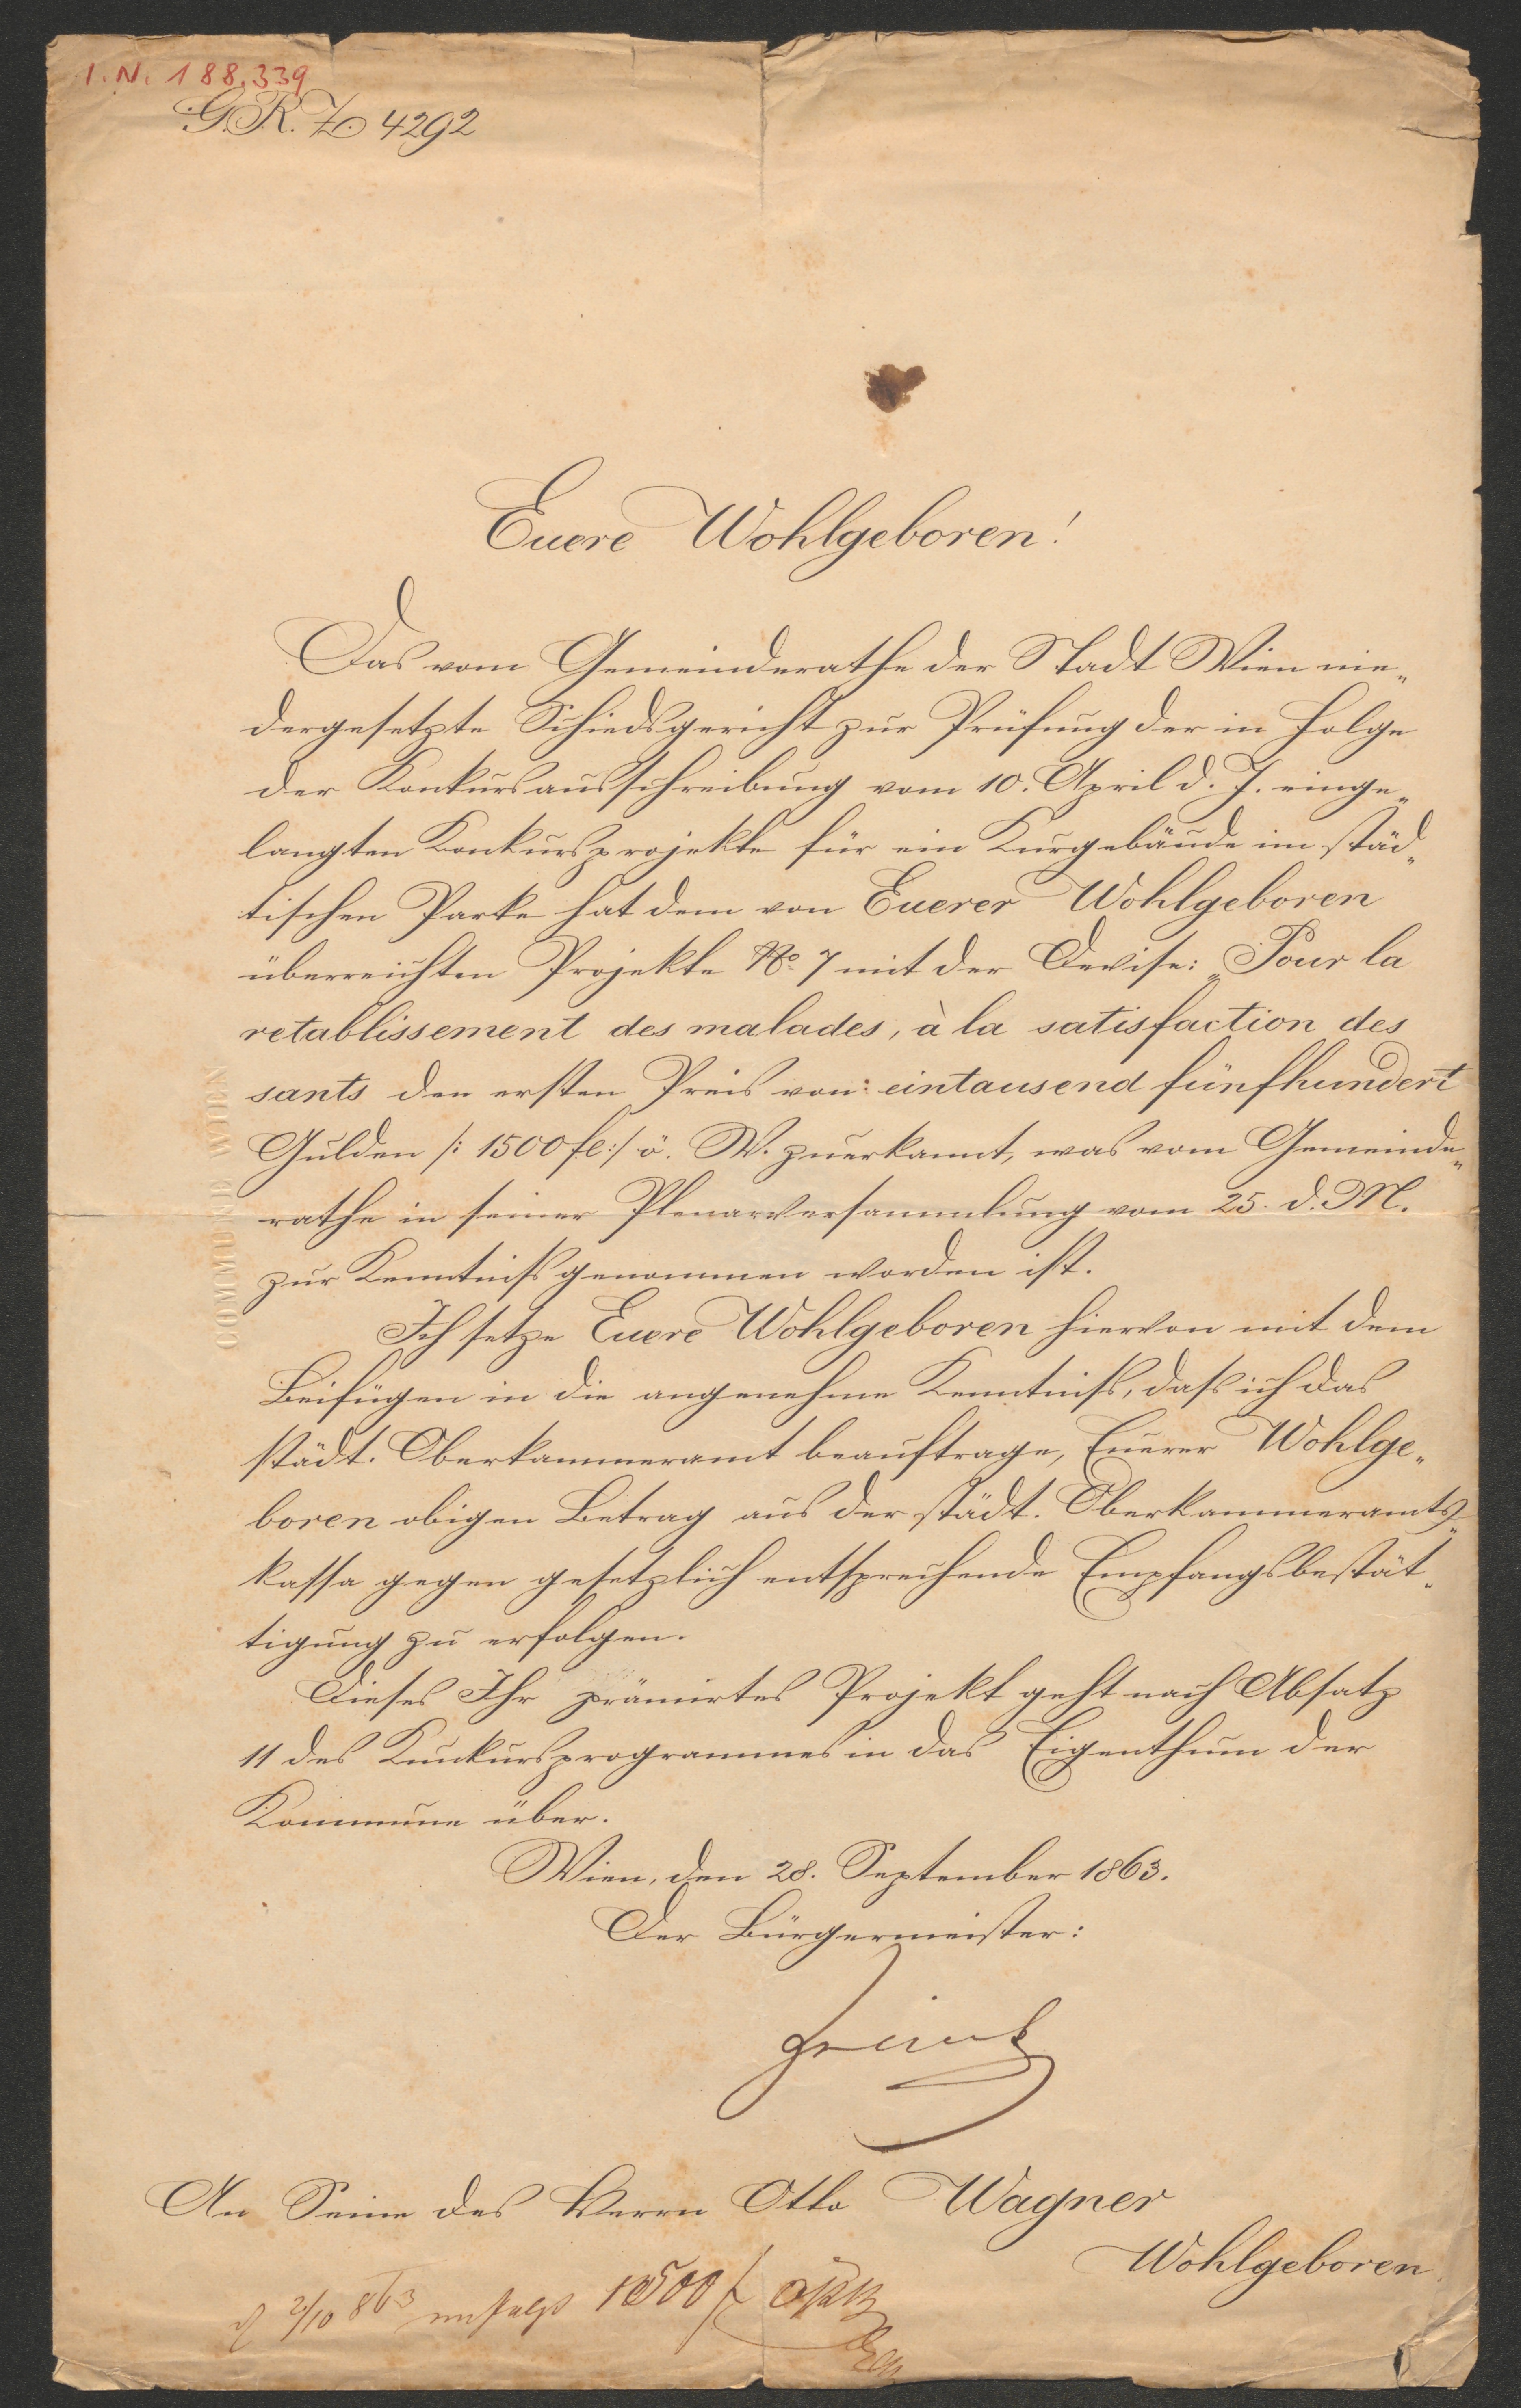 I.N. 188.339
G.R.Z. 4292
Euere Wohlgeboren!
Das vom Gemeinderathe der Stadt Wien nie„
dergesetzte Schiedsgericht zur Prüfung der in Folge
der Konkursausschreibung vom 10. April d. J. einge„
langten Konkursprojekte für ein Kurgebäude im städ„
tischen Parke hat dem von Euerer Wohlgeboren
überreichten Projekte No. 7 mit der Devise: „Pour la
retablissement des malades, à la satisfaction des
sants den ersten Preis von: eintausend fünfhundert
Gulden /: 1500 fl :/ ö. W. zuerkannt, was vom Gemeinde„
rathe in seiner Plenarversammlung vom 25. d. M.
zur Kenntniß genommen worden ist.
Ich setze Euere Wohlgeboren hievon mit dem
Beifügen in die angenehme Kenntniß, daß ich das
städt. Oberkammeramt beauftrage, Euerer Wohlge„
boren obigen Betrag aus der städt. Oberkammeramts„
kassa gegen gesetzlich entsprechende Empfangsbestät„
tigung zu erfolgen.
Dieses Ihr prämirtes Projekt geht nach Absatz
11 des Konkursprogrammes in das Eigenthum der
Kommune über.
Wien, den 28. September 1863.
Der Bürgermeister:
Zelinka
An Seine des Herrn Otto Wagner
Wohlgeboren
2/10 863 erfolgt 1500 f
COMMUNE WIEN